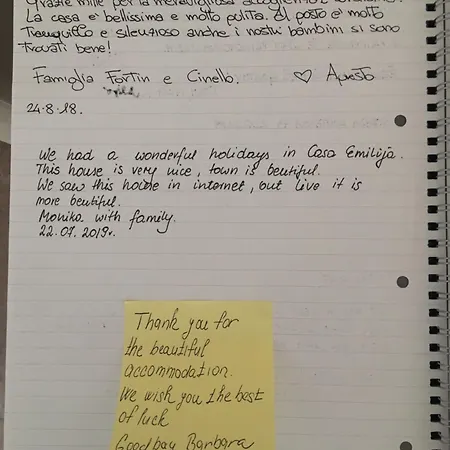 Grazie mille per la meravigliosa accoglienza
La casa e' bellissima e molto pulita. Il posto e' molto
tranquillo e silenzioso anche i nostri bambini si sono
trovati bene!
Famiglia Fortin e Cinello. ♡
24-8-18.
We had a wonderful holidays in Casa Emilija.
This house is very nice, town is beutiful.
We saw this house in internet, but live it is
more beutiful.
Monika with family.
22.07.2019r.
Thank you for
the beautiful
accommodation.
We wish you the best
of luck
Goodbay Barbara